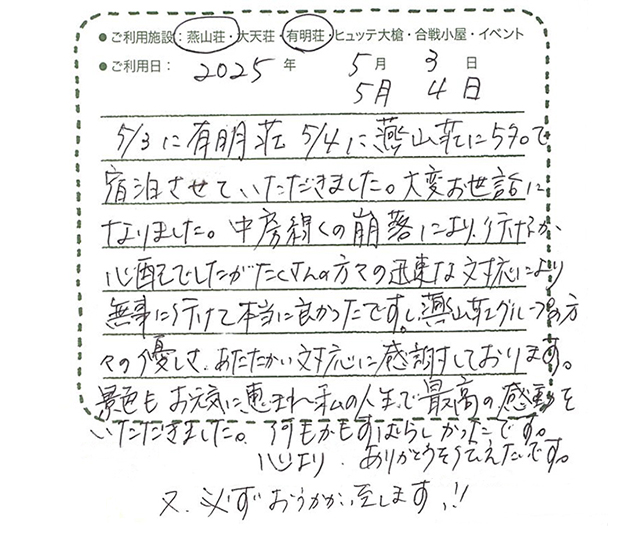 ● ご利用施設：燕山荘・大天荘・有明荘・ヒュッテ大槍・合戦小屋・イベント
● ご利用日： 2025 年 5月 3日
5月 4日
5/3に有明荘 5/4に燕山荘に5名で
宿泊させていただきました。大変お世話に
なりました。中房線の崩落により、行けるか
心配でしたがたくさんの方々の迅速な対応により
無事に行けて本当に良かったですし燕山荘グループの方
々の優しさ、あたたかい対応に感謝しております。
景色もお天気に恵まれ私の人生で最高の感動を
いただきました。何もかもすばらしかったです。
心より、ありがとうを伝えたいです。
又、必ずおうかがい致します!!